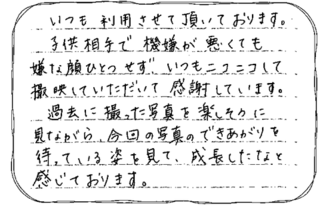 いつも利用させて頂いております。
子供相手で機嫌が悪くても
嫌な顔ひとつせず、いつもニコニコして
撮映していただいて感謝しています。
過去に撮った写真を楽しそうに
見ながら、今回の写真のできあがりを
待っている姿を見て、成長したなと
感じております。